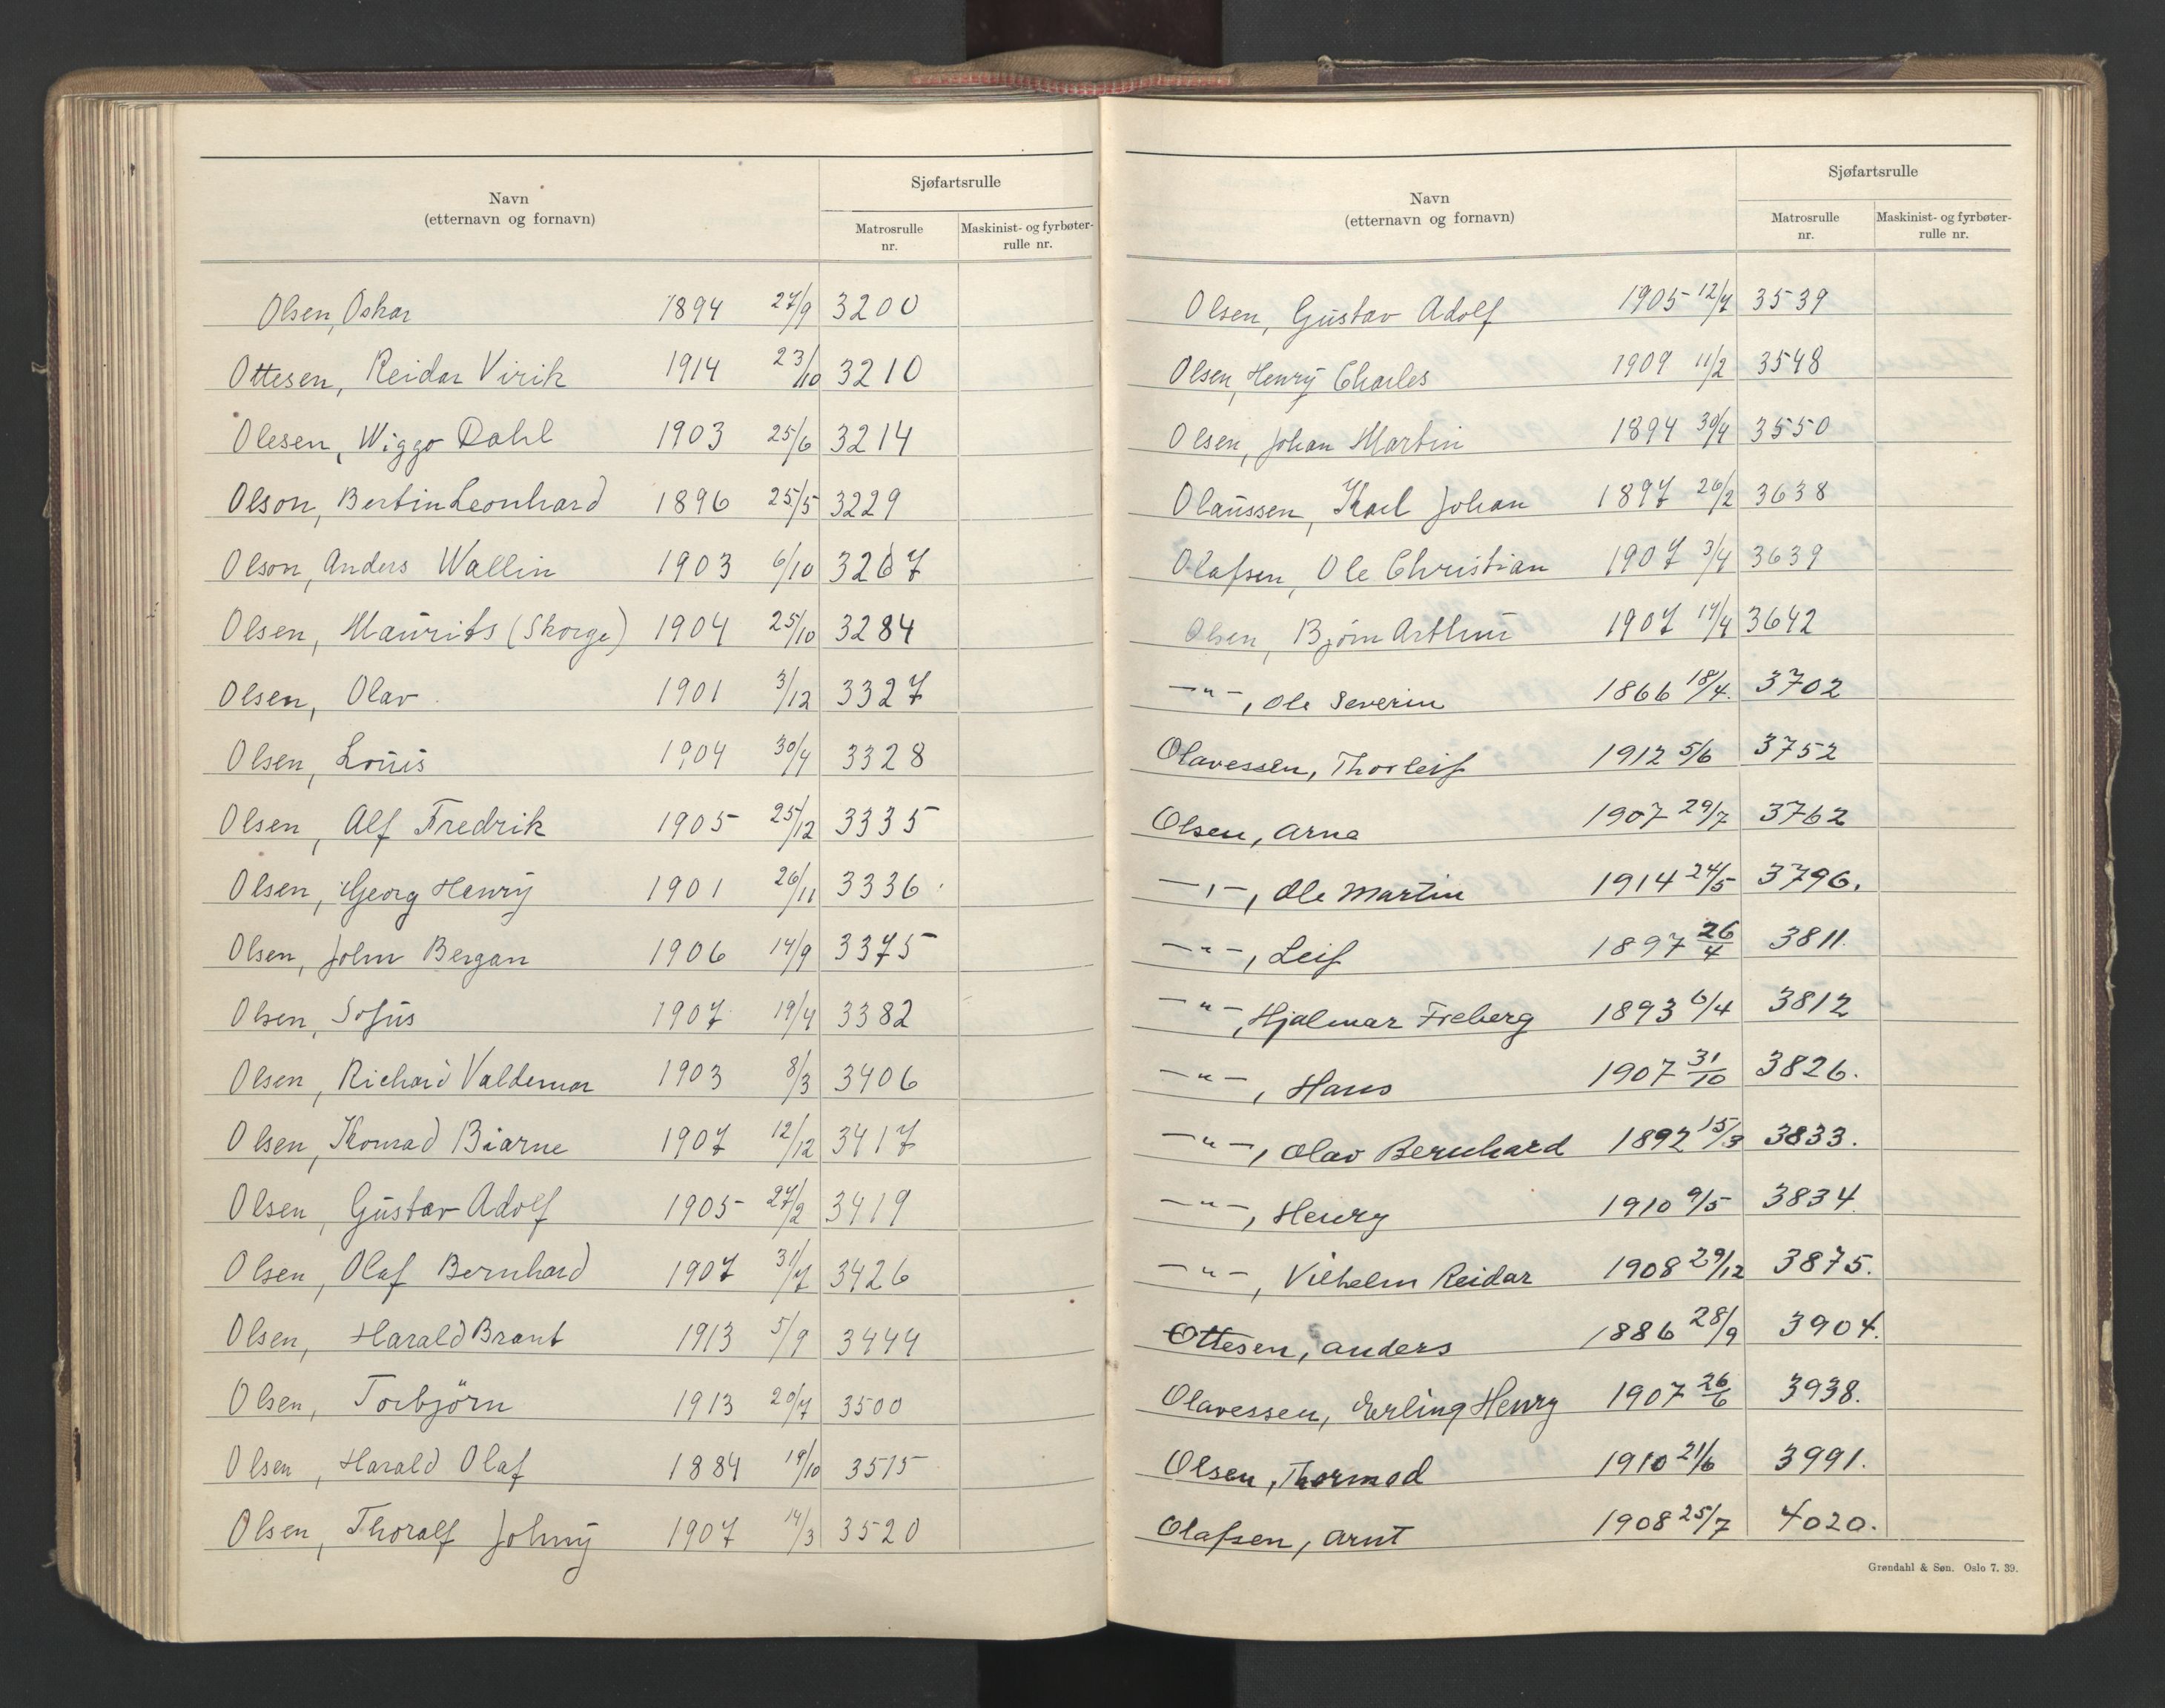 Navn
(etternavn og fornavn)
Sjøfartsrulle
Matrosrulle
nr.
Maskinist- og fyrbøter-
rulle nr.
Olsen, Oskar 1894 27/9 3200
Ottesen, Reidar Virik 1914 23/10 3210
Olesen, Wiggo Dahl 1903 25/6 3214
Olson, Bertin Leonhard 1896 25/5 3229
Olson, Anders Wallin 1903 6/10 3267
Olsen, Maurits (Skorge) 1904 25/10 3284
Olsen, Olav 1901 3/12 3327
Olsen, Louis 1904 30/4 3328
Olsen, Alf Fredrik 1905 25/12 3335
Olsen, Georg Henry 1901 26/11 3336
Olsen, John Bergan 1906 14/9 3375
Olsen, Sofus 1907 19/4 3382
Olsen, Richard Valdemar 1903 8/3 3406
Olsen, Konrad Biarne 1907 12/12 3417
Olsen, Gustav Adolf 1905 27/2 3419
Olsen, Olaf Bernhard 1907 31/7 3426
Olsen, Harald Brant 1913 5/9 3444
Olsen, Torbjörn 1913 20/7 3500
Olsen, Harald Olaf 1884 19/10 3515
Olsen, Thoralf Johny 1907 14/3 3520
Navn
(etternavn og fornavn)
Sjøfartsrulle
Matrosrulle
nr.
Maskinist- og fyrbøter-
rulle nr.
Olsen, Gustav Adolf 1905 12/7 3539
Olsen, Henry Charles 1909 11/2 3548
Olsen, Johan Martin 1894 30/4 3550
Olaussen, Karl Johan 1897 26/2 3638
Olafsen, Ole Christian 1907 3/4 3639
Olsen, Bjørn Arthur 1907 14/4 3642
—"—, Ole Severin 1866 18/4. 3702
Olavessen, Thorleif 1912 5/6 3752
Olsen, Arne 1907 29/7 3762
—"—, Ole Martin 1914 24/5 3796.
—"—, Leif 1897 26/4 3811.
—"—, Hjalmar Freberg 1893 6/4 3812
—"—, Hans 1907 31/10 3826.
—"—, Olav Bernhard 1892 15/3 3833.
—"—, Henry 1910 9/5 3834.
—"—, Vilhelm Reidar 1908 29/12 3875.
Ottesen, Anders 1886 28/9 3904.
Olavessen, Erling Henry 1907 26/6 3938.
Olsen, Thormod 1910 21/6 3991.
Olafsen, Arnt 1908 25/7 4020.
Grøndahl & Søn. Oslo 7. 39.